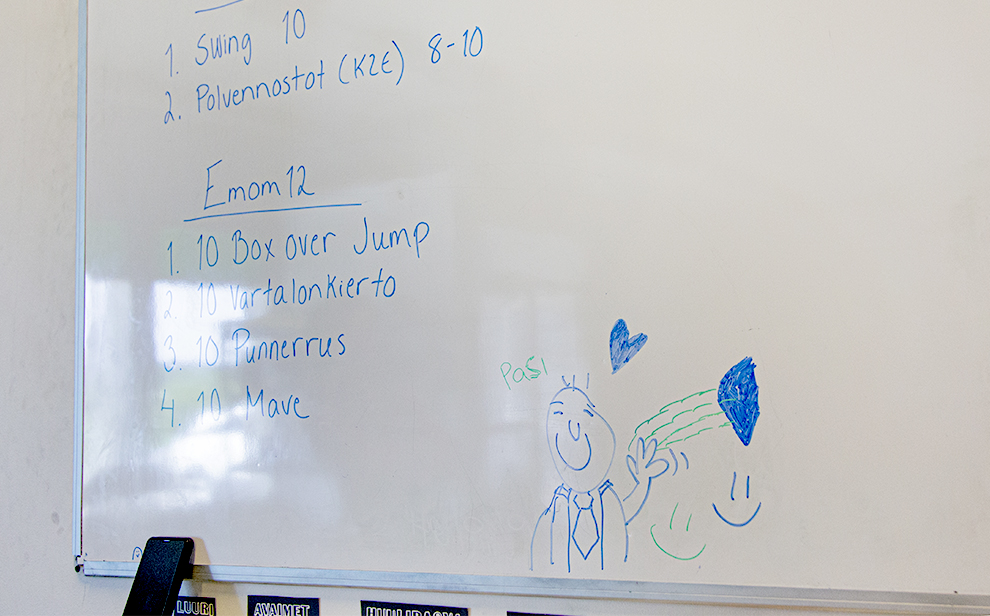 1. Swing 10
2. Polvennostot (K2E) 8-10
Emom 12
1. 10 Box over Jump
2. 10 Vartalonkierto
3. 10 Punnerrus
4. 10 Mave
Pasi
LUURI
AVAIMET